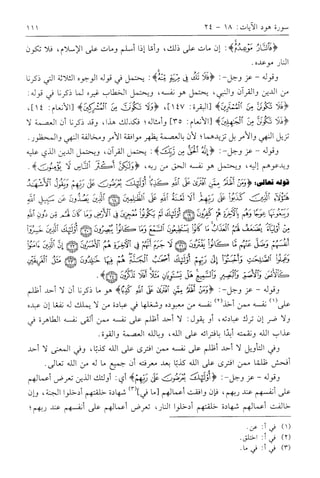 سورة هود الآيات: ١٨ - ٢٤
١١١
﴿فَالنَّارُ مَوْعِدُهُ﴾: إن مات على ذلك، وأما إذا أسلم ومات على الإسلام، فلا تكون
النار موعده.
وقوله - عز وجل-: ﴿فَلَا تَكُ فِي مِرْيَةٍ مِّنْهُ﴾: يحتمل في قوله الوجوه الثلاثة التي ذكرنا
من الدين والقرآن والنبي، يحتمل هو نفسه، ويحتمل الخطاب غيره لما ذكرنا في قوله:
﴿فَلَا تَكُونَنَّ مِنَ الْمُمْتَرِينَ﴾ [البقرة: ١٤٧]، ﴿وَلَا تَكُونَنَّ مِنَ الْمُشْرِكِينَ﴾ [الأنعام: ١٤]،
﴿فَلَا تَكُونَنَّ مِنَ الْجَاهِلِينَ﴾ [الأنعام: ٣٥] وأمثاله؛ فكذلك هذا، وقد ذكرنا أن العصمة لا
تزيل النهي والأمر بل تزيدهما؛ لأن بالعصمة يظهر موافقة الأمر ومخالفة النهي والمحظور.
وقوله - عز وجل-: ﴿إِنَّهُ الْحَقُّ مِن رَّبِّكَ﴾: يحتمل القرآن، ويحتمل الدين الذي عليه
ويدعوهم إليه، ويحتمل هو نفسه الحق من ربه، ﴿وَلَكِنَّ أَكْثَرَ النَّاسِ لَا يُؤْمِنُونَ﴾.
قوله تعالى: ﴿وَمَنْ أَظْلَمُ مِمَّنِ افْتَرَى عَلَى اللَّهِ كَذِبًا أُوْلَئِكَ يُعْرَضُونَ عَلَى رَبِّهِمْ وَيَقُولُ الْأَشْهَادُ
هَؤُلَاءِ الَّذِينَ كَذَبُوا عَلَى رَبِّهِمْ أَلَا لَعْنَةُ اللَّهِ عَلَى الظَّالِمِينَ ۝١٨ الَّذِينَ يَصُدُّونَ عَن سَبِيلِ اللَّهِ
وَيَبْغُونَهَا عِوَجًا وَهُم بِالْآخِرَةِ هُمْ كَافِرُونَ ۝١٩ أُوْلَئِكَ لَمْ يَكُونُوا مُعْجِزِينَ فِي الْأَرْضِ وَمَا كَانَ لَهُم مِّن دُونِ اللَّهِ
مِنْ أَوْلِيَاءَ يُضَاعَفُ لَهُمُ الْعَذَابُ مَا كَانُوا يَسْتَطِيعُونَ السَّمْعَ وَمَا كَانُوا يُبْصِرُونَ ۝٢٠ أُوْلَئِكَ الَّذِينَ خَسِرُوا
أَنفُسَهُمْ وَضَلَّ عَنْهُم مَّا كَانُوا يَفْتَرُونَ ۝٢١ لَا جَرَمَ أَنَّهُمْ فِي الْآخِرَةِ هُمُ الْأَخْسَرُونَ ۝٢٢ إِنَّ الَّذِينَ آمَنُوا
وَعَمِلُوا الصَّالِحَاتِ وَأَخْبَتُوا إِلَى رَبِّهِمْ أُوْلَئِكَ أَصْحَابُ الْجَنَّةِ هُمْ فِيهَا خَالِدُونَ ۝٢٣ مَثَلُ الْفَرِيقَيْنِ
كَالْأَعْمَى وَالْأَصَمِّ وَالْبَصِيرِ وَالسَّمِيعِ هَلْ يَسْتَوِيَانِ مَثَلًا أَفَلَا تَذَكَّرُونَ ۝٢٤﴾.
وقوله - عز وجل-: ﴿وَمَنْ أَظْلَمُ مِمَّنِ افْتَرَى عَلَى اللَّهِ كَذِبًا﴾ هو ما ذكرنا أن لا أحد أظلم
على(١) نفسه ممن أخذ(٢) نفسه من معبوده وشغلها في عبادة من لا يملك له نفعًا إن عبده
ولا ضر إن ترك عبادته، أو يقول: لا أحد أظلم على نفسه ممن ألقى نفسه الطاهرة في
عذاب الله ونقمته أبدًا بافترائه على الله، وبالله العصمة والقوة.
وفي التأويل لا أحد أظلم على نفسه ممن افترى على الله كذبًا، وفي المعنى لا أحد
أفحش ظلمًا ممن افترى على الله كذبًا بعد معرفته أن جميع ما له من الله تعالى.
وقوله - عز وجل-: ﴿أُوْلَئِكَ يُعْرَضُونَ عَلَى رَبِّهِمْ﴾ أي: أولئك الذين تعرض أعمالهم
على أنفسهم عند ربهم، فإن وافقت أعمالهم [ما في](٣) شهادة خلقتهم أدخلوا الجنة، وإن
خالفت أعمالهم شهادة خلقتهم أدخلوا النار، تعرض أعمالهم على أنفسهم عند ربهم؛
(١) في أ: عن.
(٢) في أ: اختلق.
(٣) في أ: في ما.